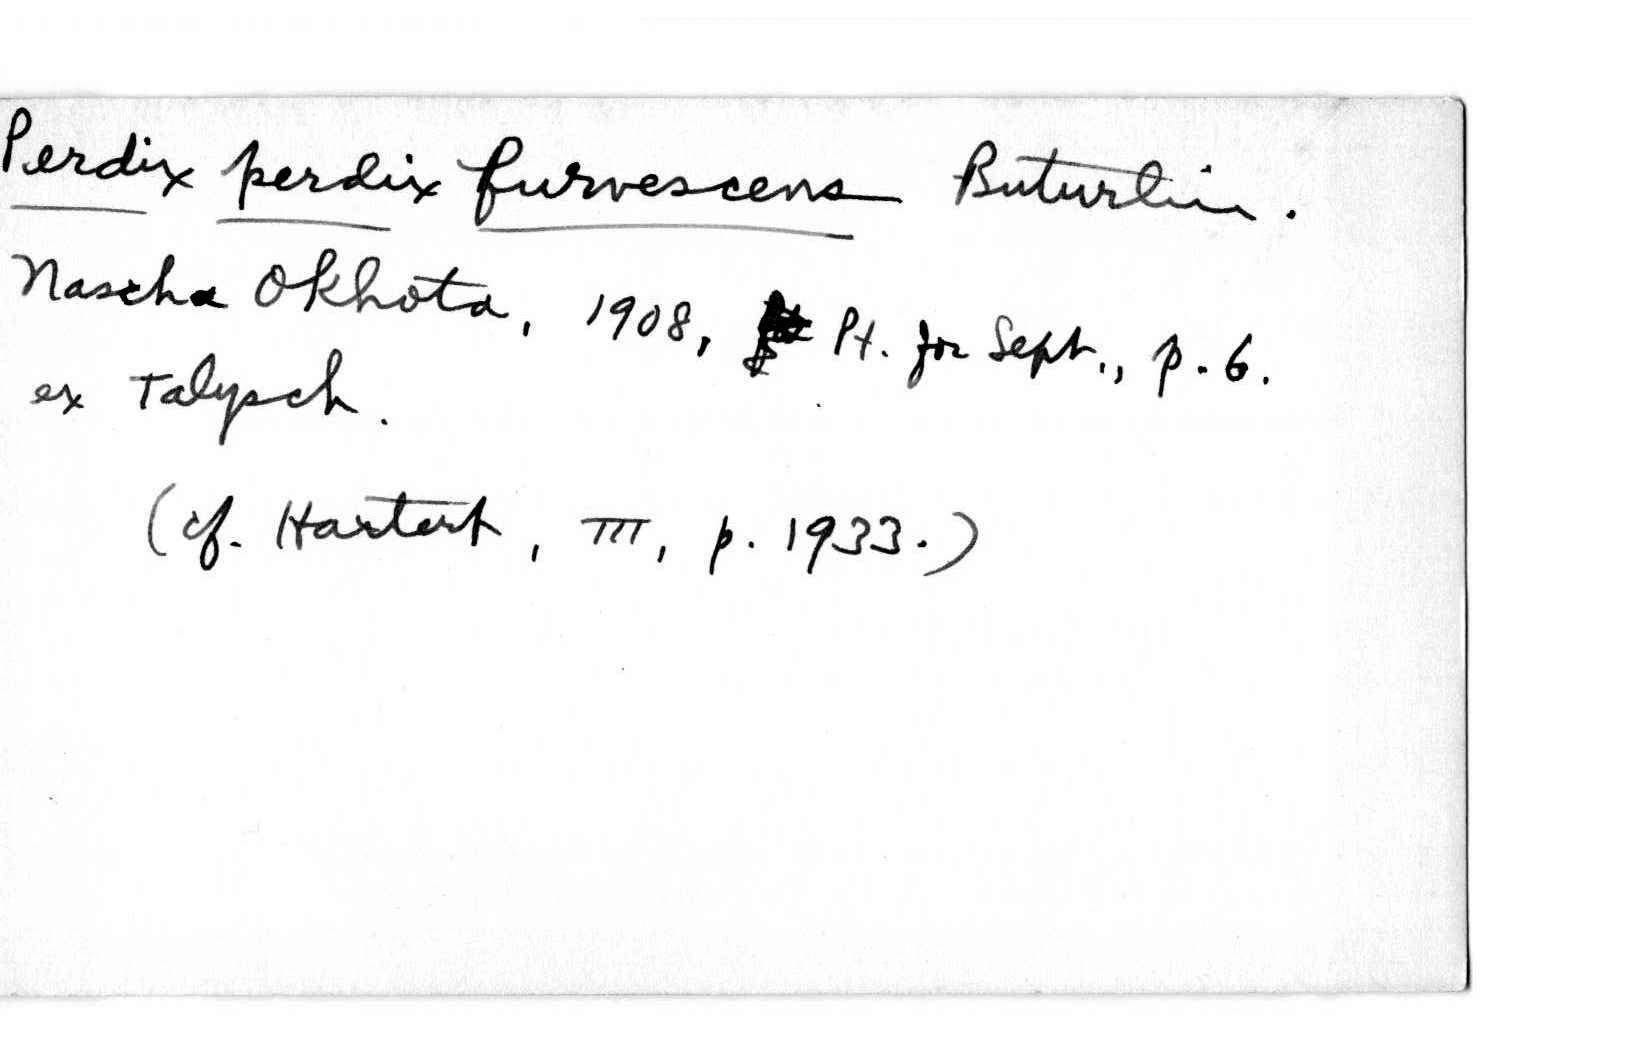 Perdix perdix furvescens Buturlin.
Nascha Okhota, 1908, Pt. for Sept., p. 6.
ex Talysch.
(cf. Hartert, III, p. 1933.)